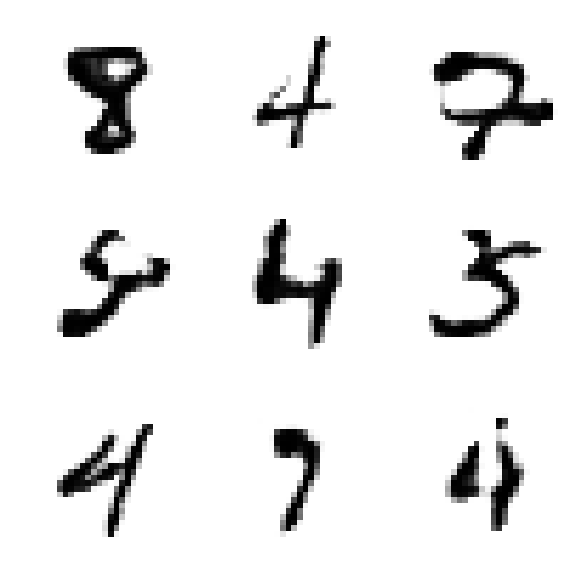 8 4 7
5 4 5
4 7 4